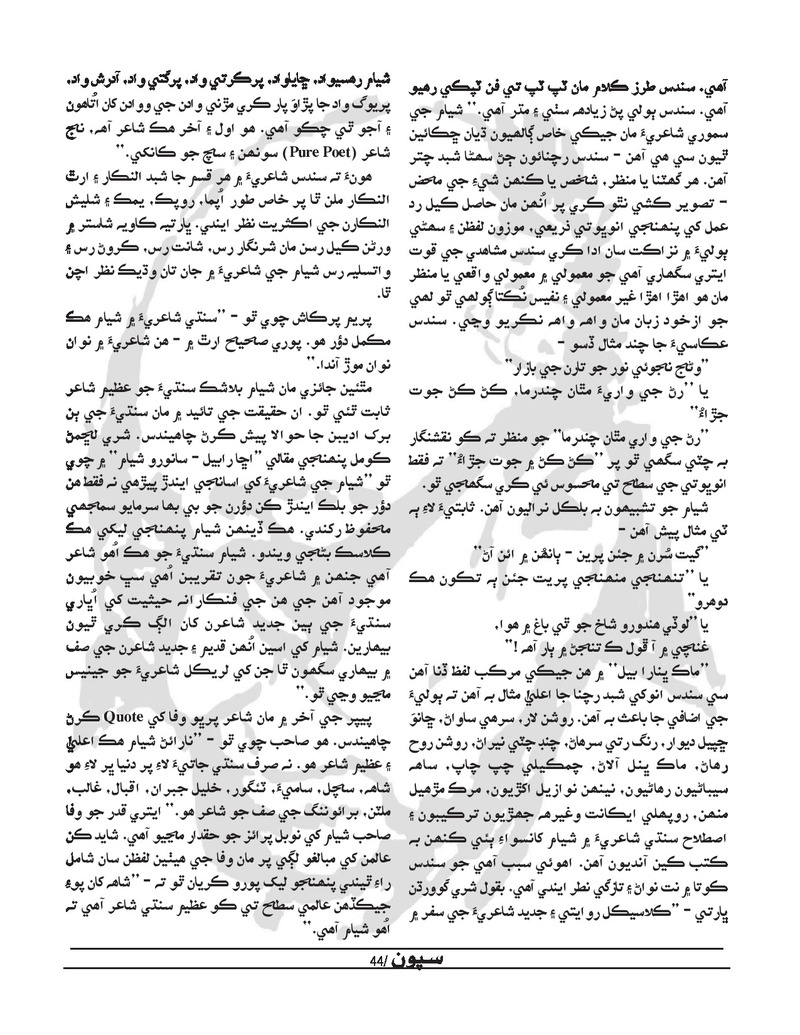 آهي. سندس طرز ڪلام مان ٽپ ٽپ تي فن ٽپڪي رهيو
آهي. سندس ٻولي پڻ زيادهہ سٺي ۽ متر آهي.'' شيام جي
سموري شاعريءَ مان جيڪي خاص ڳالهيون ڌيان ڇڪائين
ٿيون سي هي آهن – سندس رچنائون ڄڻ سهڻا شبد چتر
آهن. هر گهٽنا يا منظر، شخص يا ڪنهن شيءِ جي محض
– تصوير ڪشي نٿو ڪري پر اُنهن مان حاصل ڪيل رد
عمل کي پنهنجي انوڀوتي ذريعي، موزون لفظن ۽ سهڻي
ٻوليءَ ۾ نزاڪت سان ادا ڪري سندس مشاهدي جي قوت
ايتري سگهاري آهي جو معمولي ۾ معمولي واقعي يا منظر
مان هو اهڙا اهڙا غير معمولي ۽ نفيس نُڪتا ڳولهي ٿو لهي
جو ازخود زبان مان واهہ واهہ نڪريو وڃي. سندس
عڪاسيءَ جا چند مثال ڏسو –
''وڻج نڄوئي نور جو تارن جي بازار''
يا ''رڻ جي واريءَ مٿان چندرما، ڪڻ ڪڻ جوت
جڙاءُ''
''رڻ جي واري مٿان چندرما'' جو منظر تہ ڪو نقشنگار
بہ چٽي سگهي ٿو پر ''ڪڻ ڪڻ ۾ جوت جڙاءُ'' تہ فقط
انوڀوتي جي سطح تي محسوس ئي ڪري سگهجي ٿو.
شيام جو تشبيهون بہ بلڪل نراليون آهن. ثابتيءَ لاءِ ٻہ
ٽي مثال پيش آهن –
''گيت سُرن ۾ جئن پرين – ٻانهُن ۾ ائن آڻ''
يا ''تنهنجي منهنجي پريت جئن ٻہ تڪون هڪ
دوهرو''
يا ''لوڏي هندورو شاخ جو ٿي باغ ۾ هوا،
غنچي ۾ آڦول ڪ ننڃڻ ۾ ٻار آهہ !''
''ماڪ ڀنا رابيل'' ۾ هن جيڪي مرڪب لفظ ڏنا آهن
سي سندس انوکي شبد رچنا جا اعليٰ مثال بہ آهن تہ ٻوليءَ
جي اضافي جا باعث بہ آهن. روشن لار، سرهي ساواڻ، ڇانوَ
ڇپيل ديوار، رنگ رتي سرهاڻ، چند چٽي نيراڻ، روشن روح
رهاڻ، ماڪ ڀنل آلاڻ، چمڪيلي چپ چاپ، ساهہ
سيباڻيون رهاڻيون، نينهن نوازيل اکڙيون، مرڪ مڙهيل
منهن، روپهلي ايڪانت وغيرهہ جهڙيون ترڪيبون ۽
اصطلاح سنڌي شاعريءَ ۾ شيام کانسواءِ ٻئي ڪنهن بہ
ڪتب ڪين آنديون آهن. اهوئي سبب آهي جو سندس
ڪوتا ۾ نت نواڻ ۽ تازگي نظر ايندي آهي. بقول شري گوورڌن
ڀارتي – ''ڪلاسيڪل روايتي ۽ جديد شاعريءَ جي سفر ۾
شيام رهسيواد، ڇاياواد، پرڪرتي واد، پرگتي واد، آدرش واد،
پريوگ واد جا پڙاوَ پار ڪري مڙني وادن جي ووادن کان اُتاهون
۽ آجو ٿي چڪو آهي. هو اول ۽ آخر هڪ شاعر آهہ، نڄ
شاعر (Pure Poet) سونهن ۽ سچ جو ڪانکي.''
هونءَ تہ سندس شاعريءَ ۾ هر قسم جا شبد النڪار ۽ ارٿ
النڪار ملن ٿا پر خاص طور اُپما، روپڪ، يمڪ ۽ شليش
النڪارن جي اڪثريت نظر ايندي. ڀارتيہ ڪاويہ شاستر ۾
ورڻن ڪيل رسن مان شرنگار رس، شانت رس، ڪروڻ رس ۽
واتسليہ رس شيام جي شاعريءَ ۾ جان تان وڌيڪ نظر اچن
ٿا.
پريم پرڪاش چوي ٿو – ''سنڌي شاعريءَ ۾ شيام هڪ
مڪمل دؤر هو. پوري صحيح ارٿ ۾ – هن شاعريءَ ۾ نوان
نوان موڙ آندا.''
مٿئين جائزي مان شيام بلاشڪ سنڌيءَ جو عظيم شاعر
ثابت ٿئي ٿو. ان حقيقت جي تائيد ۾ مان سنڌيءَ جي ٻن
برک اديبن جا حوالا پيش ڪرڻ چاهيندس. شري لڇمڻ
ڪومل پنهنجي مقالي ''اڇا رابيل – سانورو شيام'' ۾ چوي
ٿو ''شيام جي شاعريءَ کي اسانجي ايندڙ پيڙهي نہ فقط هن
دؤر جو بلڪ ايندڙ ڪن دؤرن جو بي بها سرمايو سمجهي
محفوظ رکندي. هڪ ڏينهن شيام پنهنجي ليکي هڪ
ڪلاسڪ بڻجي ويندو. شيام سنڌيءَ جو هڪ اُهو شاعر
آهي جنهن ۾ شاعريءَ جون تقريبن اُهي سڀ خوبيون
موجود آهن جي هن جي فنڪارانہ حيثيت کي اُڀاري
سنڌيءَ جي ٻين جديد شاعرن کان الڳ ڪري ٿيون
بيهارين. شيام کي اسين اُنهن قديم ۽ جديد شاعرن جي صف
۾ بيهاري سگهون ٿا جن کي لريڪل شاعريءَ جو جينيس
مڃيو وڃي ٿو.''
پيپر جي آخر ۾ مان شاعر پرڀو وفا کي Quote ڪرڻ
چاهيندس. هو صاحب چوي ٿو – ''نارائڻ شيام هڪ اعليٰ
۽ عظيم شاعر هو. نہ صرف سنڌي جاتيءَ لاءِ پر دنيا ڀر لاءِ هو
شاهہ، سچل، ساميءَ، ٽئگور، خليل جبران، اقبال، غالب،
ملٽن، برائوننگ جي صف جو شاعر هو.'' ايتري قدر جو وفا
صاحب شيام کي نوبل پرائز جو حقدار مڃيو آهي. شايد ڪن
عالمن کي مبالغو لڳي پر مان وفا جي هيٺين لفظن سان شامل
راءِ ٿيندي پنهنجو ليک پورو ڪريان ٿو تہ – ''شاهہ کان پوءِ
جيڪڏهن عالمي سطح تي ڪو عظيم سنڌي شاعر آهي تہ
اُهو شيام آهي.''
سپون /44